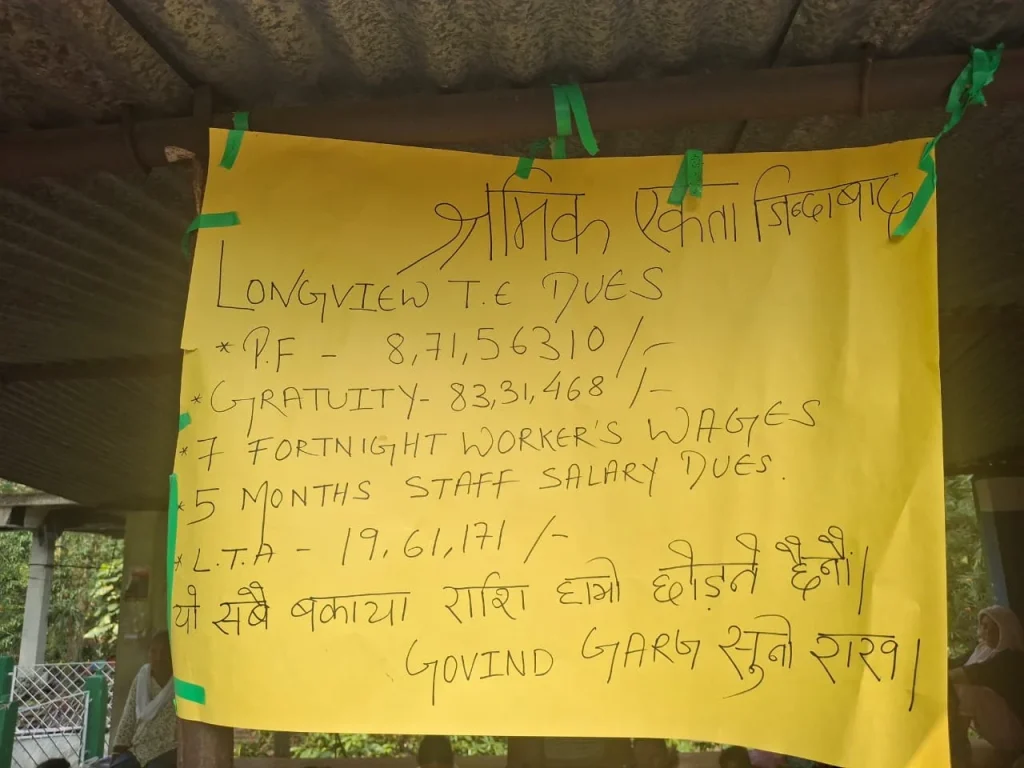 श्रमिक एकता जिन्दाबाद
LONGVIEW T.E DUES
* P.F - 8,71,56310/-
* GRATUITY- 83,31,468/-
* 7 FORTNIGHT WORKER'S WAGES
* 5 MONTHS STAFF SALARY DUES.
* L.T.A - 19,61,171/-
यो सबै बकाया राशि हामो छोड़ने छैनौं।
GOVIND GARG सुनी राख।